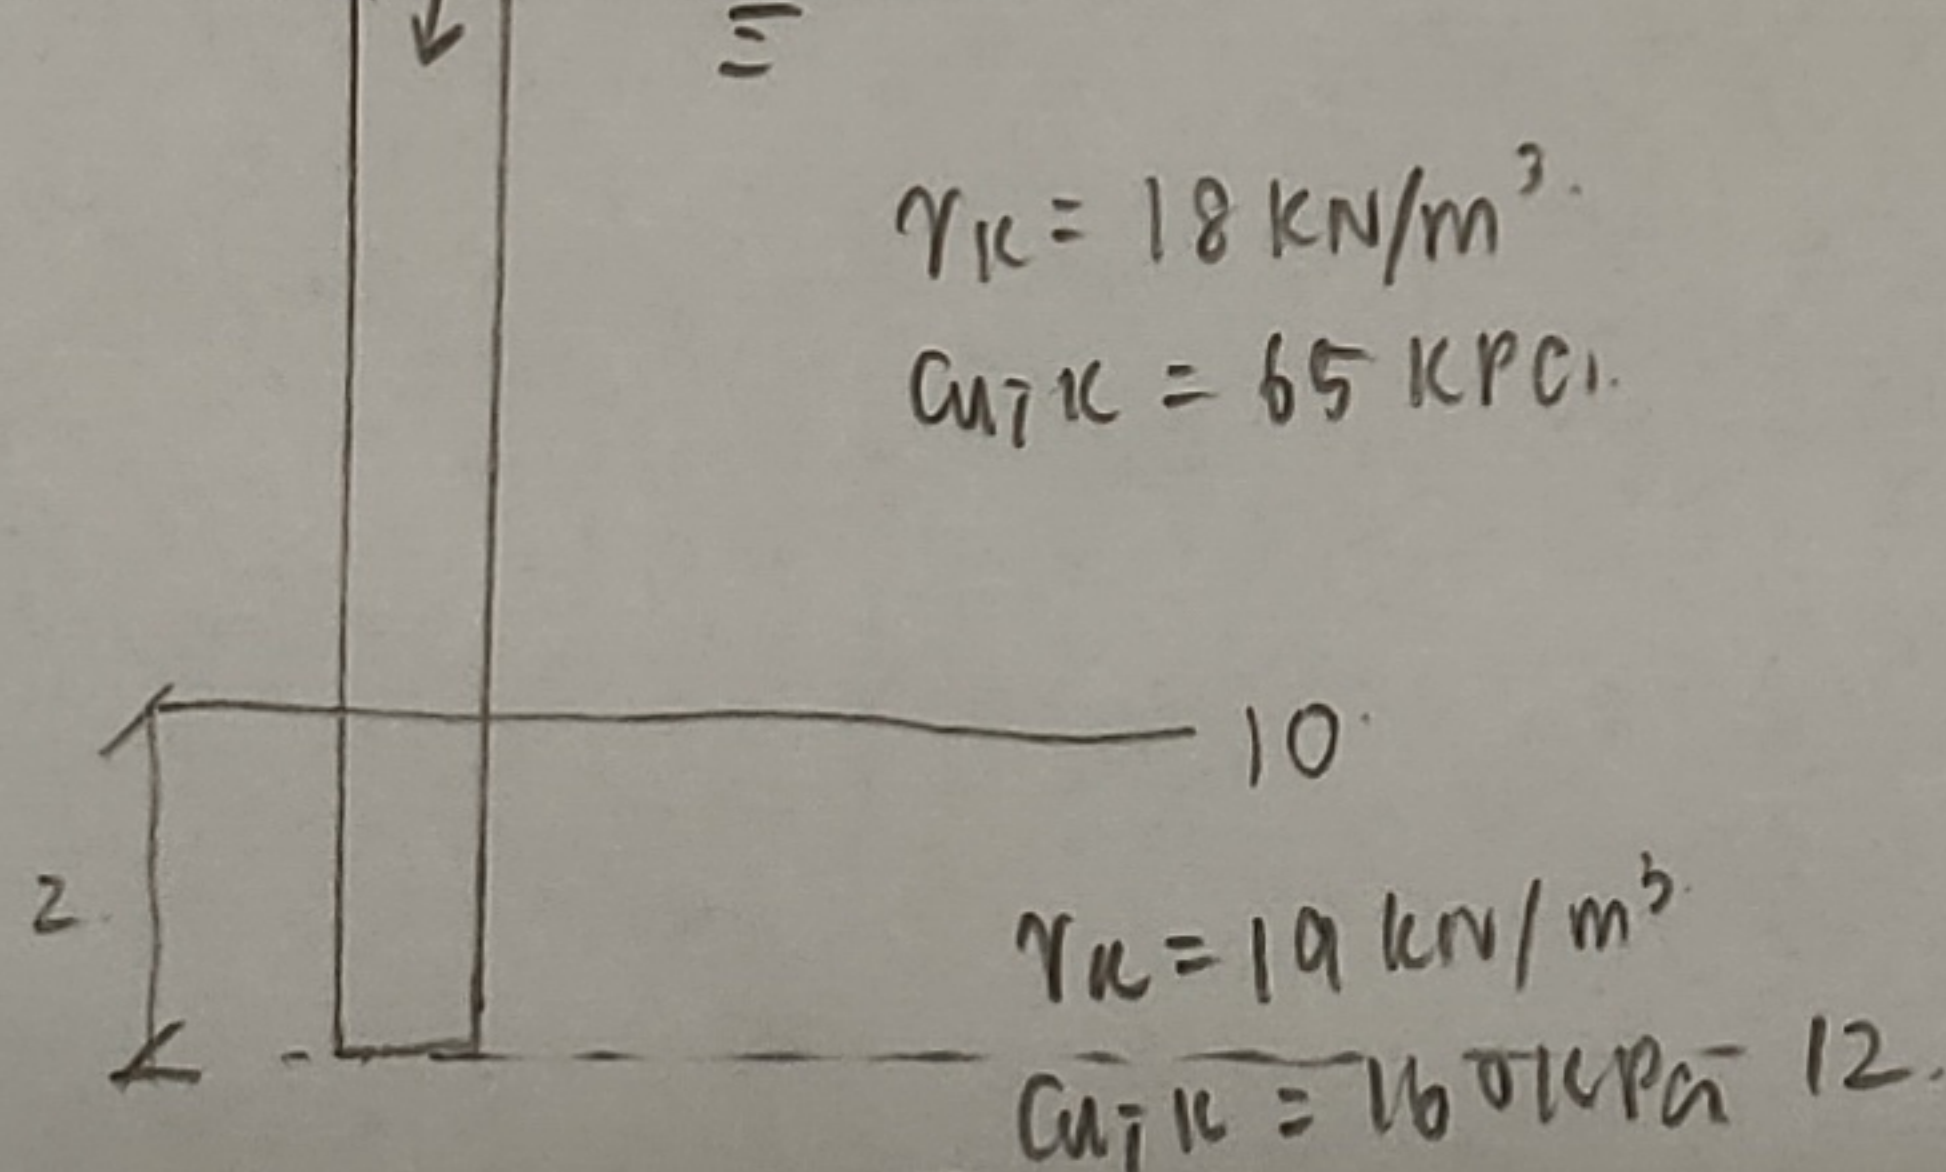 γk = 18 KN/m³.
Cu;k = 65 KPa.
10
2.
γk = 19 kN/m³
12.
Cu;k = 160 KPa